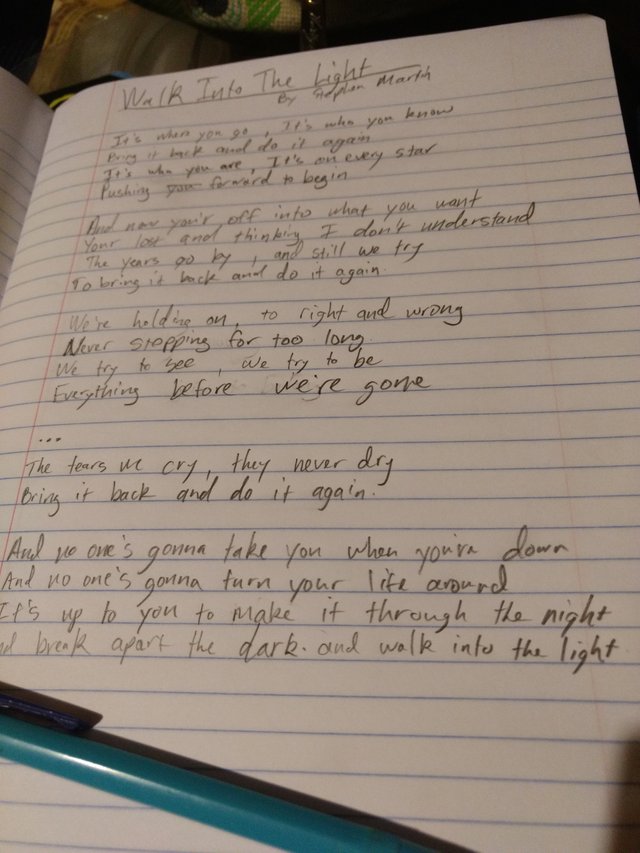 Walk Into The Light
By Stephen Martin
It's where you go, It's who you know
Bring it back and do it again
It's who you are, It's on every star
Pushing you forward to begin
And now you'r off into what you want
Your lost and thinking I don't understand
The years go by, and still we try
To bring it back and do it again.
We're holding on, to right and wrong
Never stopping for too long
We try to see, we try to be
Everything before we're gone
...
The tears we cry, they never dry
Bring it back and do it again.
And no one's gonna take you when you're down
And no one's gonna turn your life around
It's up to you to make it through the night
nd break apart the dark. and walk into the light